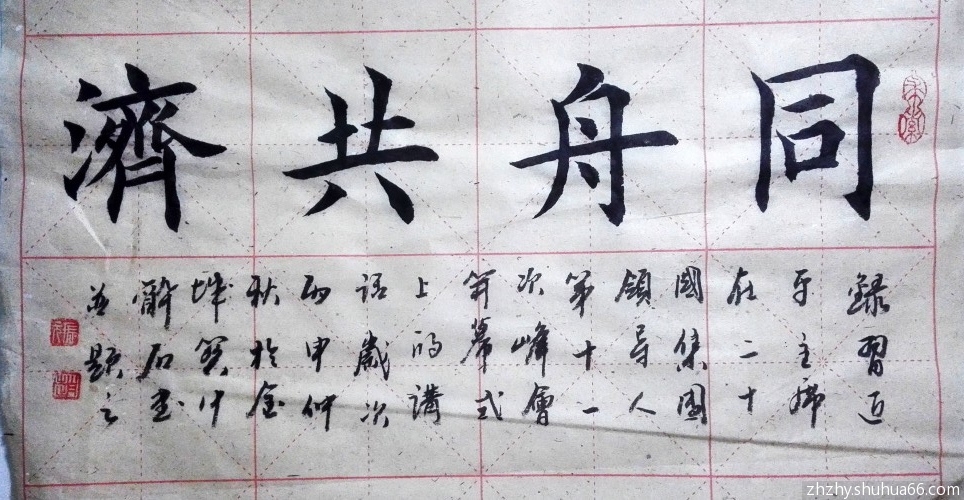 同舟共濟
錄習近
平主席
在二十
國集團
領导人
第十一
次峰會
開幕式
上的講
話歲次
丙申仲
秋於金
城
石書
並題之
zhzhy.shuhua66.com